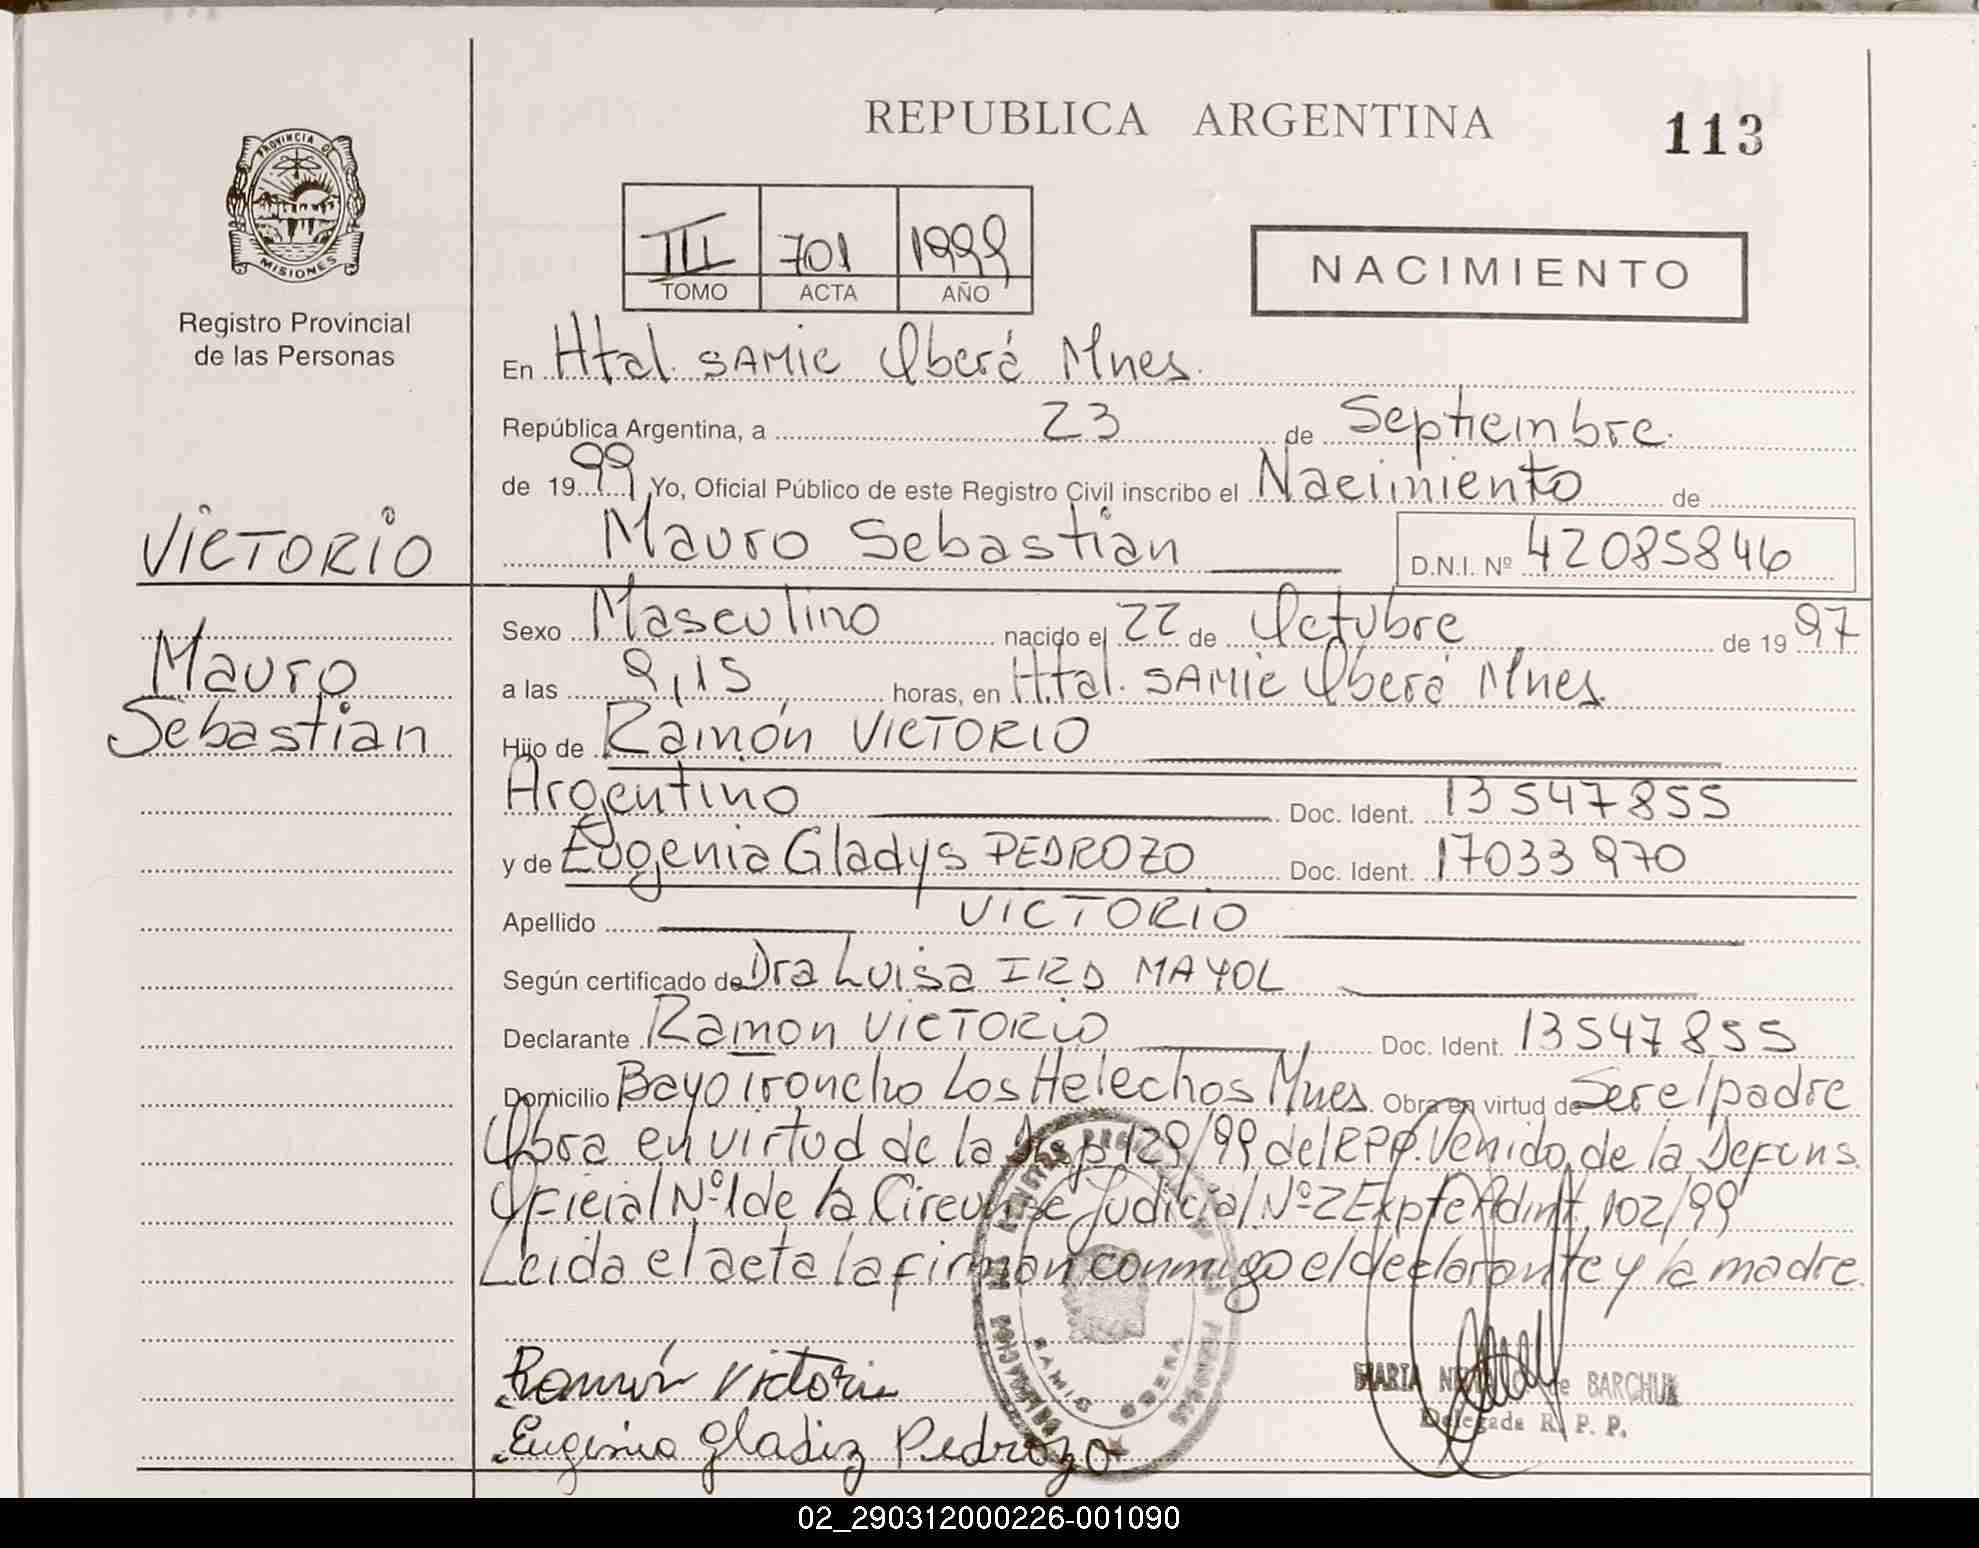 REPUBLICA ARGENTINA
113
PROVINCIA DE
MISIONES
Registro Provincial
de las Personas
III 701 1999
TOMO ACTA AÑO
NACIMIENTO
En Htal. SAMIC Oberá Mnes.
República Argentina, a 23 de Septiembre
de 1999 Yo, Oficial Público de este Registro Civil inscribo el Nacimiento de
Mauro Sebastian D.N.I. Nº 42085846
VICTORIO
Mauro
Sebastian
Sexo Masculino nacido el 22 de Octubre de 1997
a las 9,15 horas, en Htal. SAMIC Oberá Mnes.
Hijo de Ramón VICTORIO
Argentino Doc. Ident. 13547855
y de Eugenia Gladys PEDROZO Doc. Ident. 17033970
Apellido VICTORIO
Según certificado de Dra Luisa MAYOL
Declarante Ramon VICTORIO Doc. Ident. 13547855
Domicilio Los Helechos Mnes. Obra en virtud de Ser el padre
Obra en virtud de la 429/99 del RPP. Venido de la Defens.
Oficial Nº1 de la Judicial Nº2 Expte 102/99
Leida el acta la firman conmigo el declarante y la madre.
Ramón Victorio
Eugenia Gladiz Pedrozo
SAMIC OBERA
MARIA de BARCHUK
Delegada R. P. P.
02_290312000226-001090